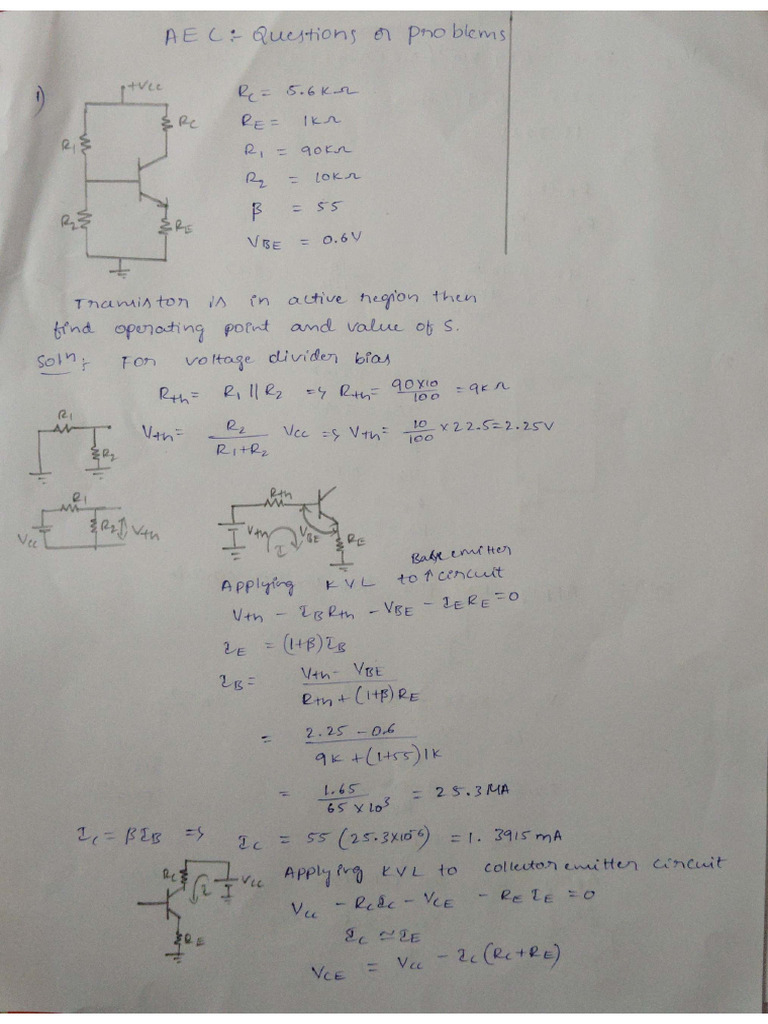 AEC:- Questions or problems
1)
+Vcc
R1
RC
R2
RE
RC = 5.6KΩ
RE = 1KΩ
R1 = 90KΩ
R2 = 10KΩ
β = 55
VBE = 0.6V
Transistor is in active region then
find operating point and value of S.
Soln:- For voltage divider bias
Rth = R1 || R2 => Rth = 90×10/100 = 9KΩ
R1
R2
Vth = R2/(R1+R2) Vcc => Vth = 10/100 × 22.5 = 2.25V
R1
Vcc
R2
Vth
Rth
Vth
I
VBE
RE
Applying KVL to Base emitter circuit
Vth - IBRth - VBE - IERE = 0
IE = (1+β)IB
IB = (Vth - VBE)/(Rth + (1+β)RE)
= (2.25 - 0.6)/(9K + (1+55)1K)
= 1.65/(65×10³) = 25.3MA
IC = βIB => IC = 55(25.3×10⁻⁶) = 1.3915mA
RC
I
VCC
RE
Applying KVL to collector emitter circuit
Vcc - RCIC - VCE - REIE = 0
IC ≃ IE
VCE = Vcc - IC(RC+RE)